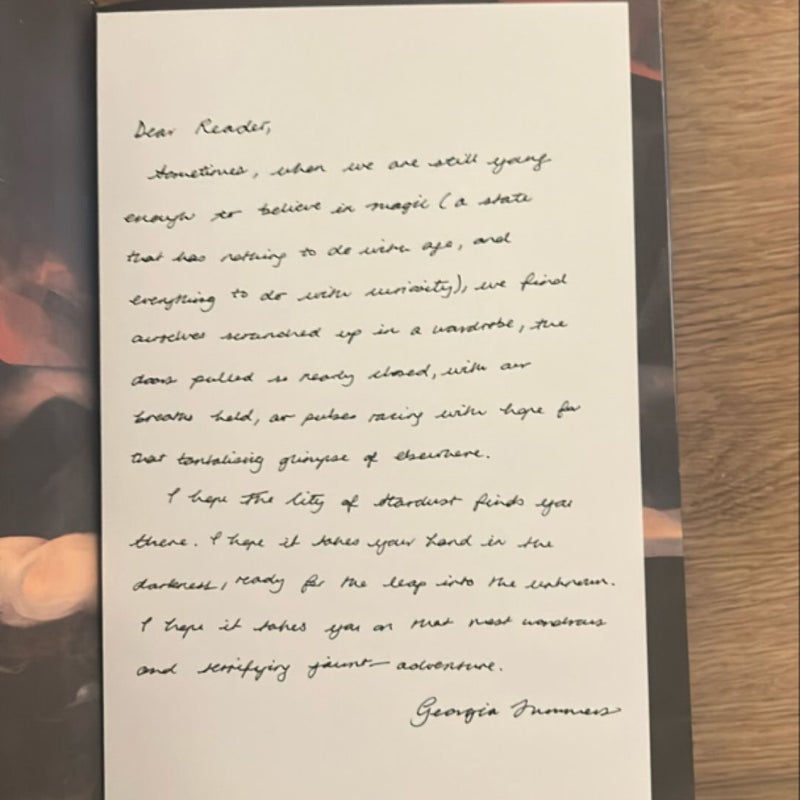 Dear Reader,
Sometimes, when we are still young
enough to believe in magic (a state
that has nothing to do with age, and
everything to do with curiosity), we find
ourselves scrunched up in a wardrobe, the
doors pulled so nearly closed, with our
breaths held, our pulses racing with hope for
that tantalising glimpse of elsewhere.
I hope The City of Stardust finds you
there. I hope it takes your hand in the
darkness, ready for the leap into the unknown.
I hope it takes you on that most wondrous
and terrifying jaunt — adventure.
Georgia Summers